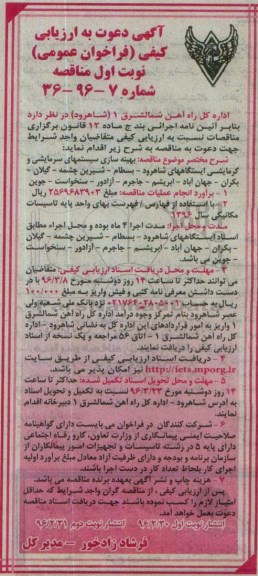 آگهی دعوت به ارزیابی
کیفی (فراخوان عمومی)
نوبت اول مناقصه
شماره ۷-۹۶-۳۶
اداره کل راه آهن شمالشرق ۱ (شاهرود) در نظر دارد
بنابر آئین نامه اجرائی بند ج ماده ۱۲ قانون برگزاری
مناقصات نسبت به ارزیابی کیفی متقاضیان واجد شرایط
جهت دعوت به مناقصه به شرح زیر اقدام نماید:
شرح مختصر موضوع مناقصه: بهینه سازی سیستمهای سرمایشی و
گرمایشی ایستگاههای شاهرود - بسطام - شیرین چشمه - گیلان -
بکران - جهان آباد - ابریشم - جاجرم - آزادور - سنخواست - جوین
۱- برآورد انجام عملیات مناقصه: مبلغ ۲۵۶۹۶۸۳۹۰۳ ریال
۲- با استفاده از فهارس / فهرست بهای واحد پایه تأسیسات
مکانیکی سال ۱۳۹۶
مدت و محل اجرا: مدت اجرا ۴ ماه بوده و محل اجراء مطابق
اسناد ایستگاههای شاهرود - بسطام - شیرین چشمه - گیلان
- بکران - جهان آباد - ابریشم - جاجرم - آزادور - سنخواست
- جوین می باشد.
۳- مهلت و محل دریافت اسناد ارزیابی کیفی: متقاضیان
می توانند حداکثر تا ساعت ۱۴ روز دوشنبه مورخ ۹۶/۳/۸ با در
دست داشتن معرفی نامه کتبی و فیش واریز به مبلغ ۱۰۰/۰۰۰
ریال به حساب نزد بانک ملی شعبه ولی
عصر شاهرود بنام تمرکز وجوه درآمد اداره کل راه آهن شمالشرق
۱ واریز به امور قراردادهای این اداره کل به نشانی شاهرود - اداره
کل راه آهن شمالشرق ۱ - اتاق ۵۶ مراجعه و یک نسخه از اسناد
ارزیابی کیفی را دریافت نمایند.
۴- دریافت اسناد ارزیابی کیفی از طریق سایت
http://iets.mporg.ir نیز امکان پذیر می باشد.
۵- مهلت و محل تحویل اسناد تکمیل شده: حداکثر تا ساعت
۱۴ روز دوشنبه مورخ ۹۶/۳/۲۲ نسبت به تکمیل و تحویل اسناد
به آدرس شاهرود - اداره کل راه آهن شمالشرق ۱ دبیرخانه اقدام
نمایند.
۶- شرکت کنندگان در فراخوان می بایست دارای گواهینامه
صلاحیت ایمنی پیمانکاری از وزارت تعاون، کار و رفاه اجتماعی
دارای پایه ۵ در رشته تاسیسات و تجهیزات و پیمانکاران از
سازمان برنامه و بودجه و دارای ظرفیت آزاد معادل مبلغ برآورد اولیه
اجرای کار بلحاظ تعداد کار در دست اجرا باشند.
۷- هزینه چاپ و نشر آگهی بعهده برنده مناقصه می باشد.
پس از ارزیابی کیفی، از مناقصه گران واجد شرایط که حداقل
امتیاز لازم را کسب نموده باشند جهت دریافت اسناد مناقصه
دعوت بعمل خواهد آمد.
انتشار نوبت اول ۹۶/۲/۳۰ انتشار نوبت دوم ۹۶/۲/۳۱
فرشاد زادخور - مدیر کل